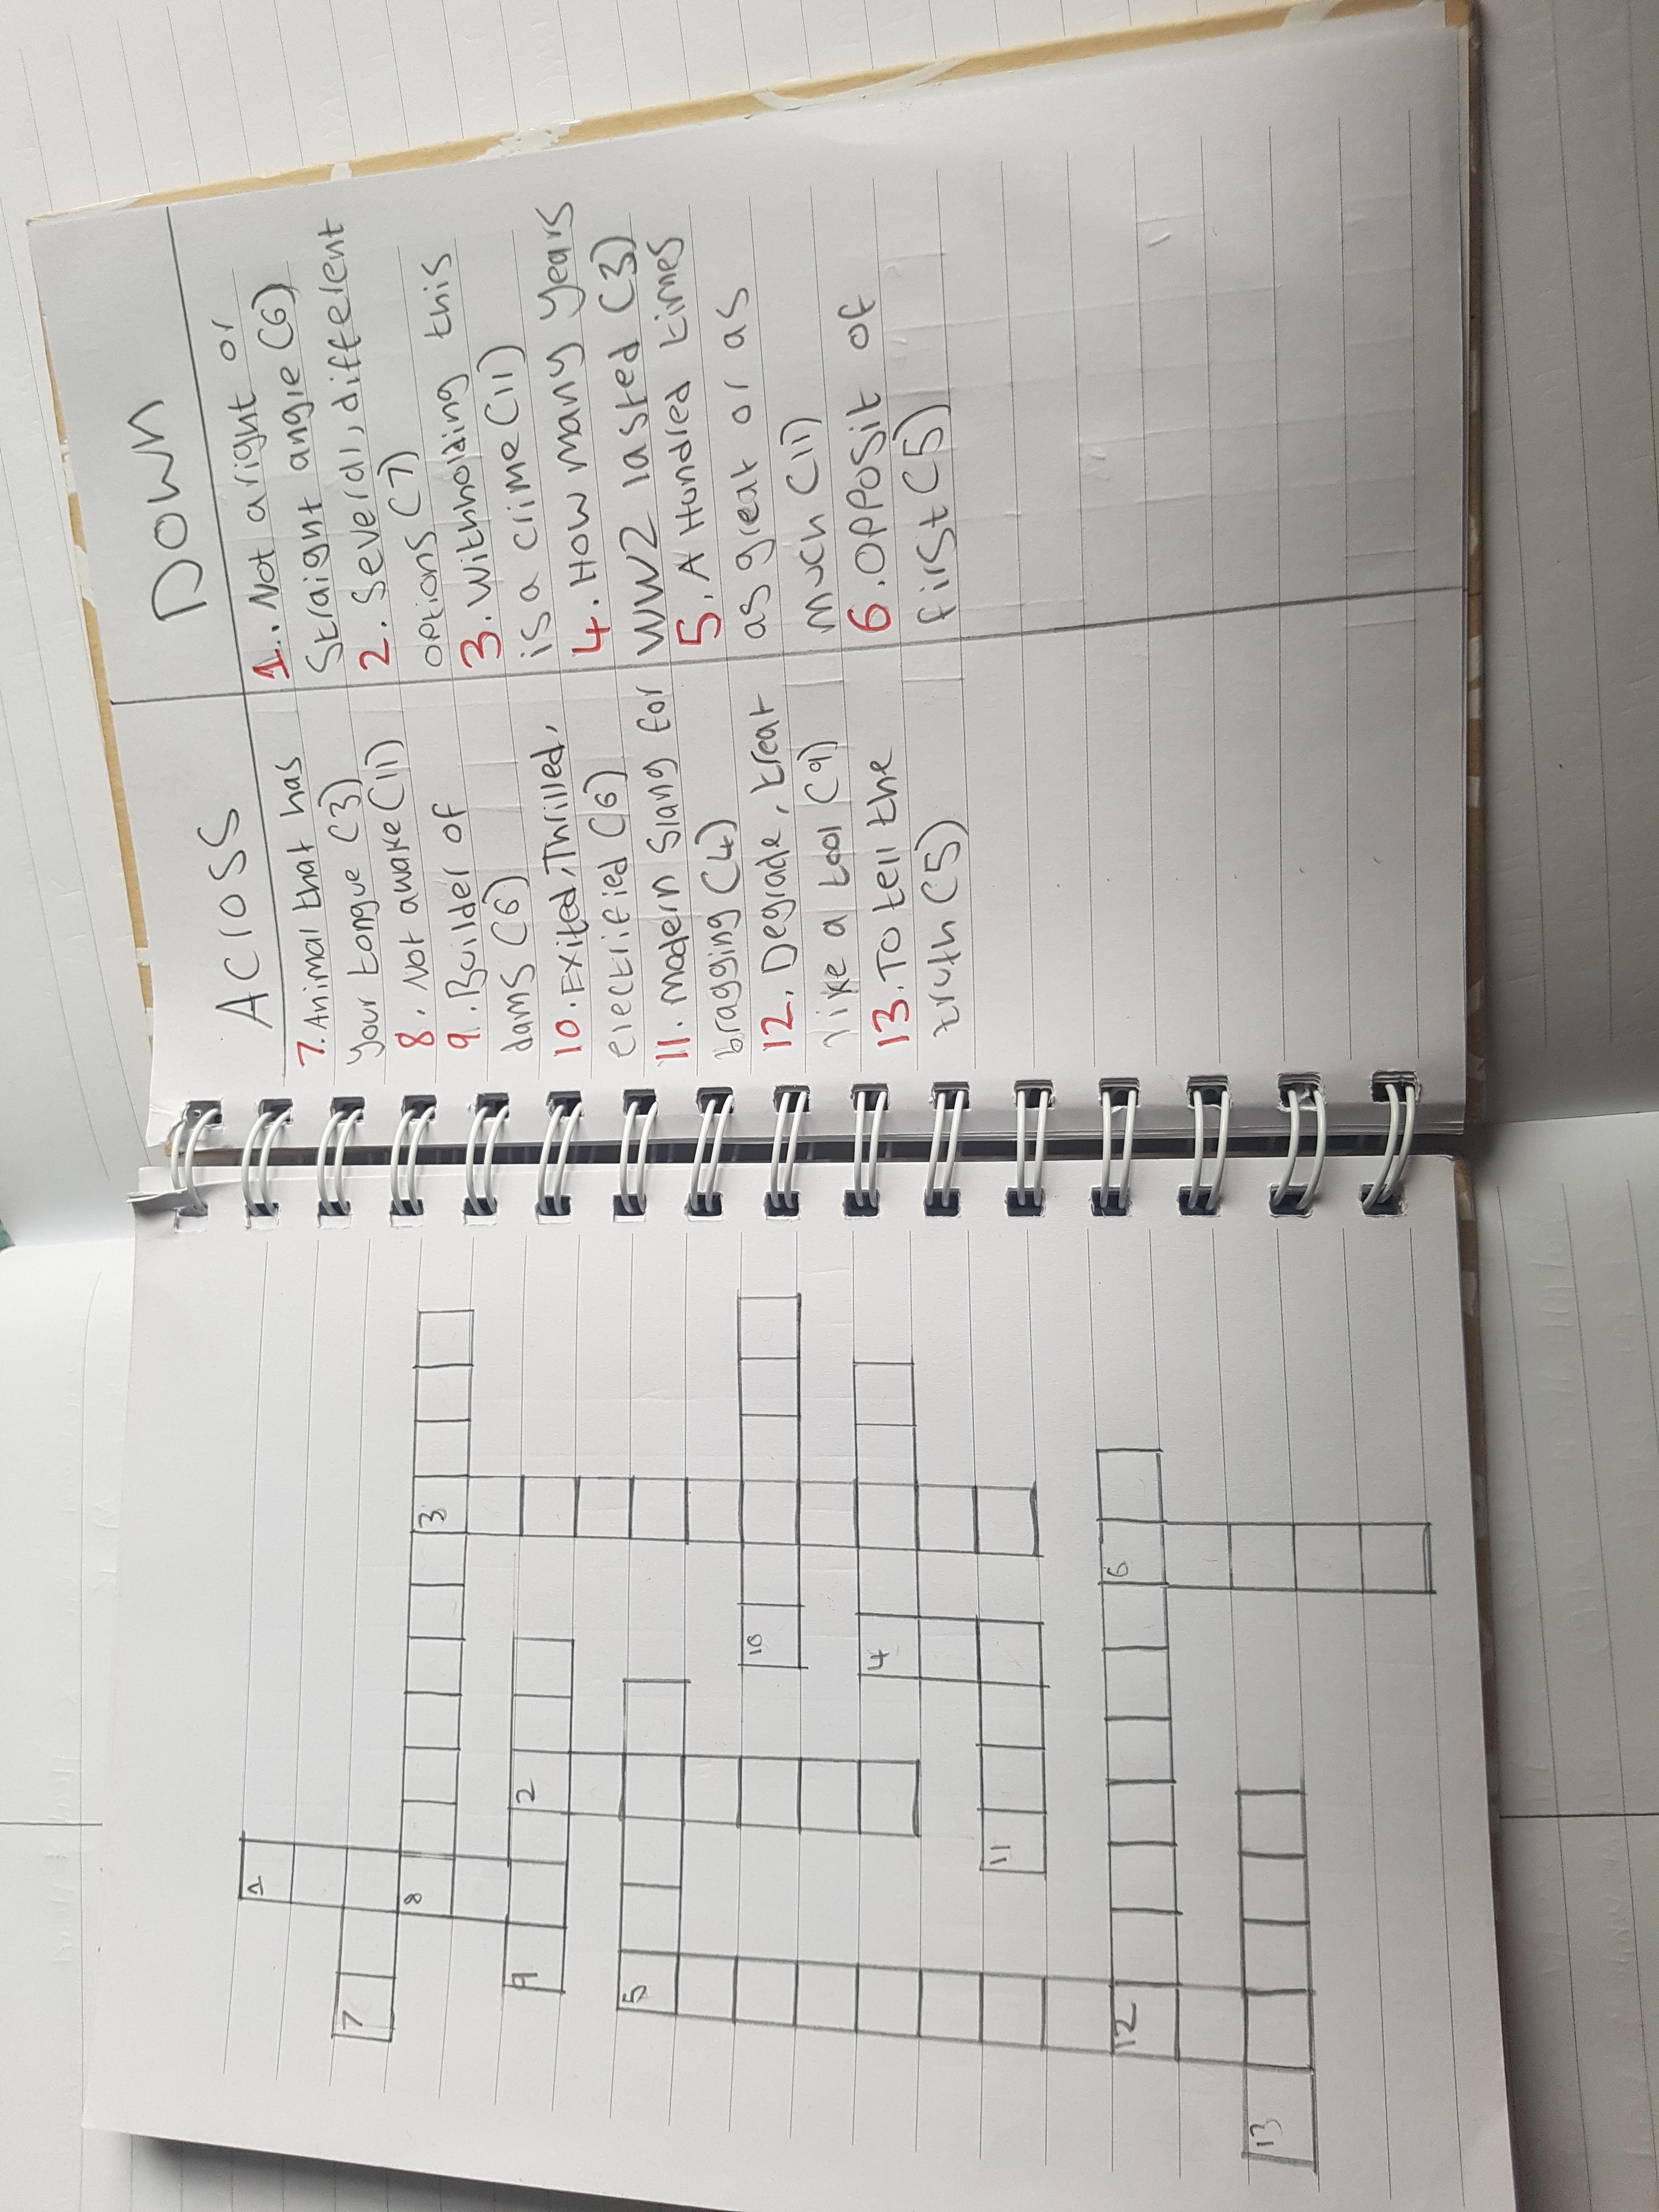 1
7
8
3
9
2
5
10
4
11
12
6
13
Across
7. Animal that has
your tongue (3)
8. Not awake (11)
9. Builder of
dams (6)
10. Exited, Thrilled,
electrified (6)
11. modern slang for
bragging (4)
12. Degrade, treat
like a tool (9)
13. To tell the
truth (5)
Down
1.. Not a right or
Straight angle (6)
2. Several, different
options (7)
3. Withholding this
is a crime (11)
4. How many years
WW2 lasted (3)
5. A Hundred times
as great or as
much (11)
6. Opposit of
first (5)